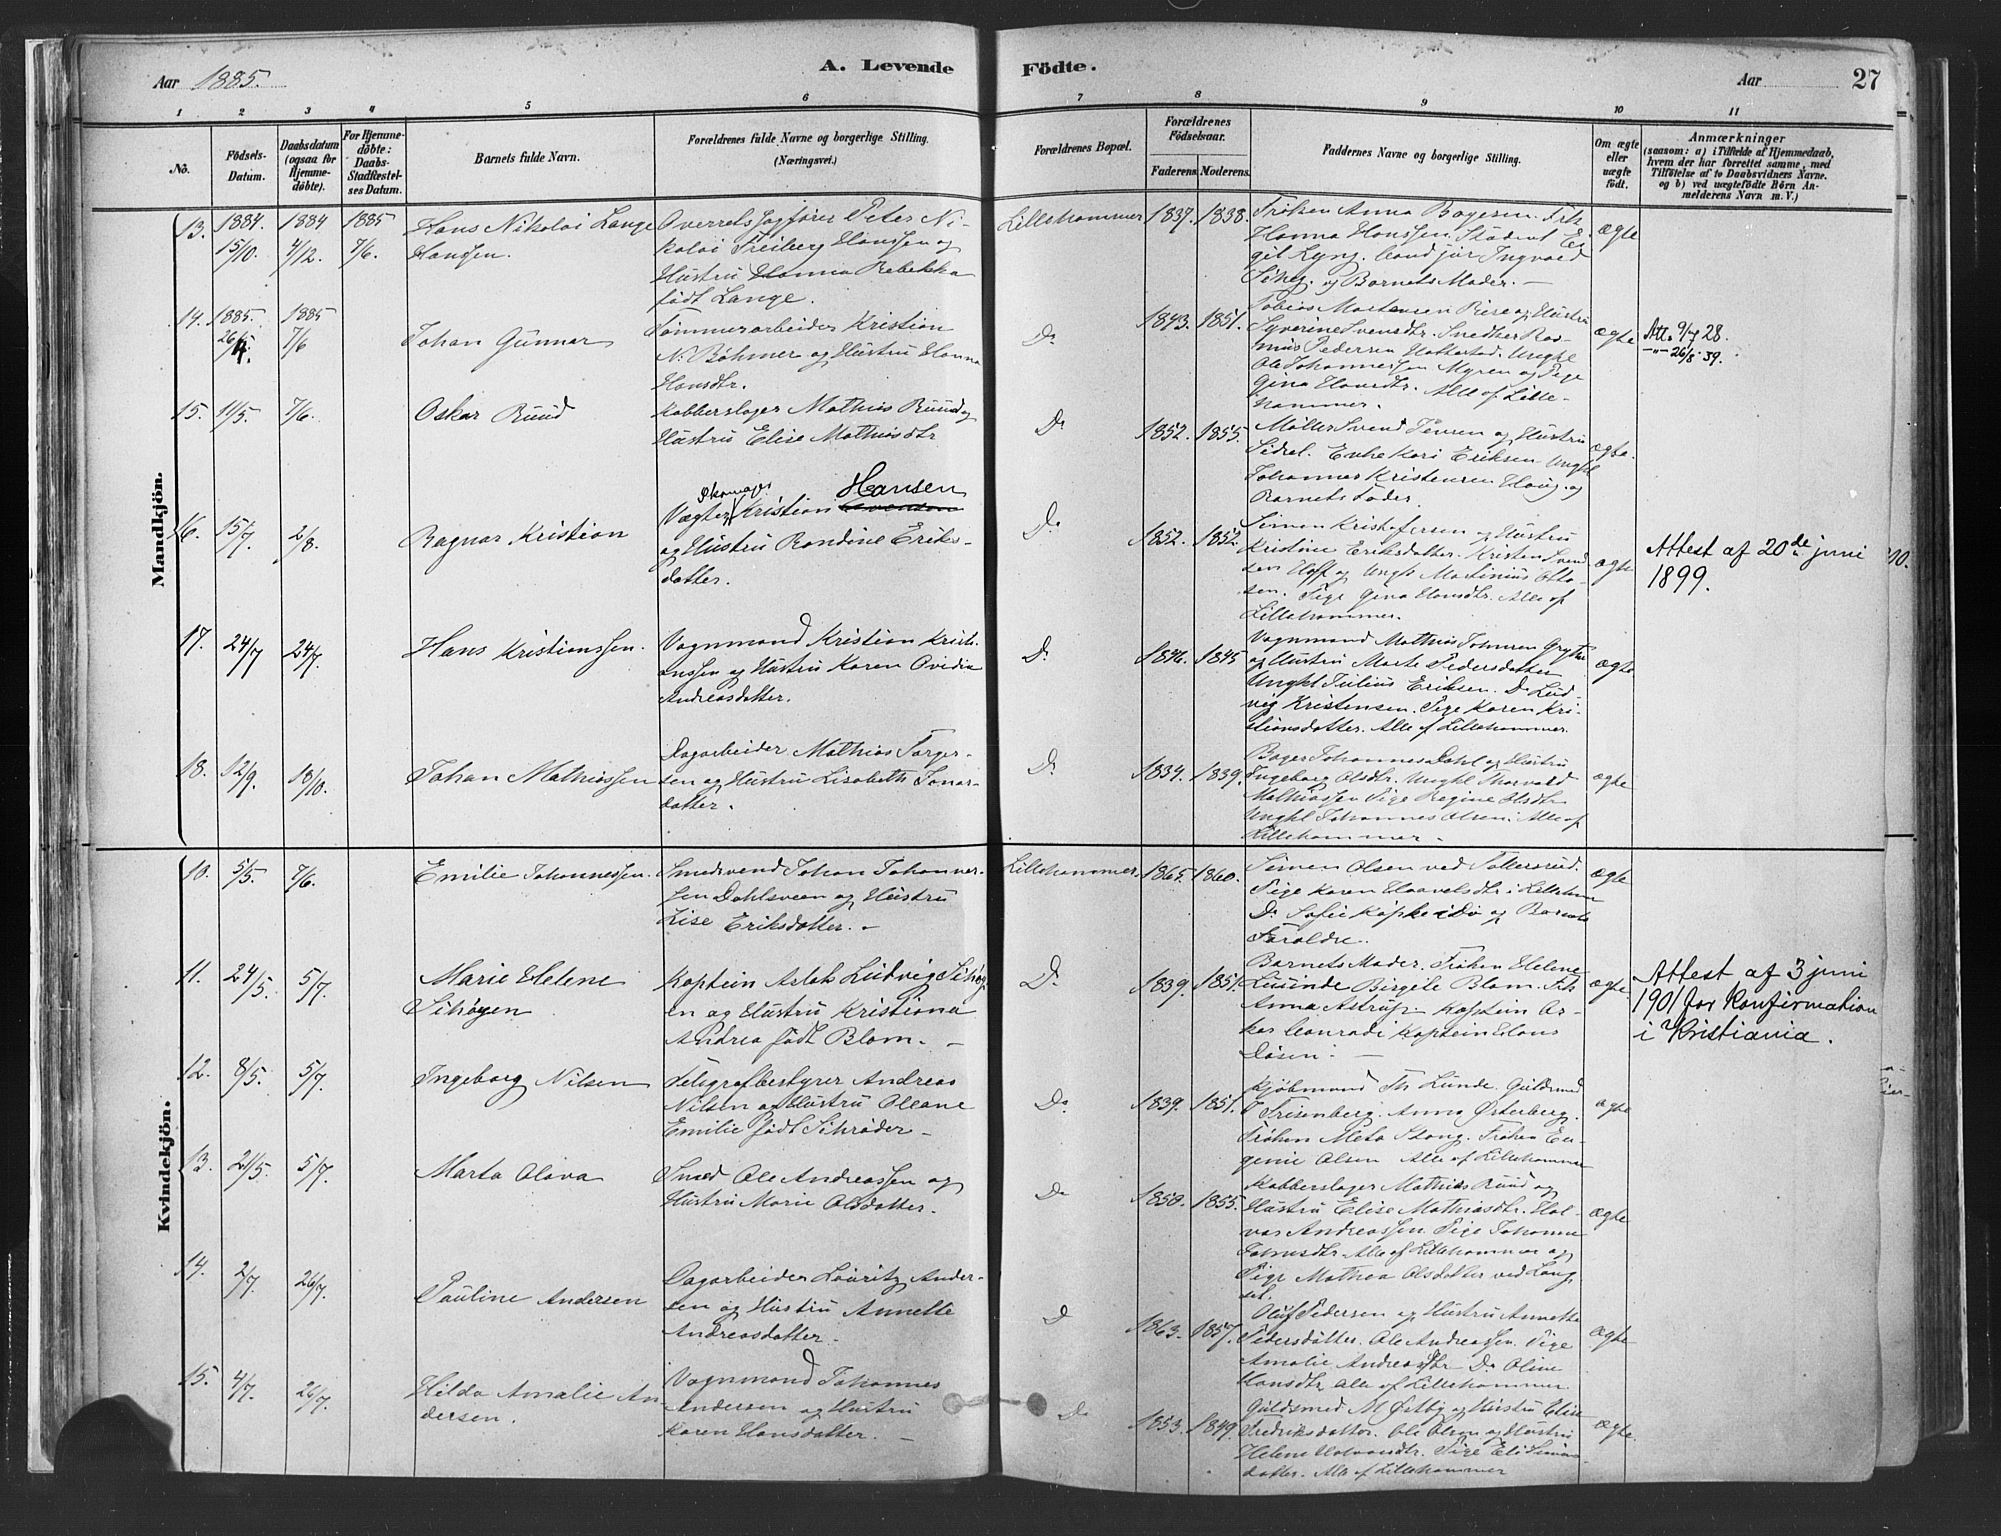 Aar 1885.
A. Levende Födte.
Aar
27
1 2 3 4 5 6 7 8 9 10 11
No.
Födsels-Datum.
Daabsdatum (ogsaa for Hjemmedöbte).
For Hjemmedöbte: Daabs-Stadfæstelses Datum.
Barnets fulde Navn.
Forældrenes fulde Navne og borgerlige Stilling.
(Næringsvei.)
Forældrenes Bopæl.
Forældrenes Födselsaar.
Faderens. Moderens.
Faddernes Navne og borgerlige Stilling.
Om ægte eller uægte födt.
Anmærkninger
(saasom: a) i Tilfælde af Hjemmedaab,
hvem der har forrettet samme, med
Tilföielse af to Daabsvidners Navne.
og b) ved uægtefödte Börn An-
melderens Navn m. V.)
Mandkjön.
13. 1884 15/10. 1884 4/12. 1885 7/6.
Hans Nikolai Lange
Hanssen.
Overretssagfører Peter Ni-
kolai Freiberg Hanssen og
Hustru Hanna Rebekka
født Lange.
Lillehammer 1837. 1838.
Frøken Anna Bagesen. Frk
Hanna Hanssen. Student Ei-
gil Lyng. Cand jur Ingvald
og Barnets Moder. —
ægte
14. 1885. 26/4. 1885 7/6
Johan Gunnar
Tømmerarbeider Kristian
N. Bøhmer og Hustru Hanna
Hansdtr.
Do 1843. 1851.
Tobias Mortensen Riise og Hustru
Syverine Svensdtr. Snedker Ras-
mus Pedersen Ungkl
Ole Johannessen Myren og Pige
Gina Hansdtr. Alle af Lille-
hammer.
ægte
Att. 9/7 28.
—"— 26/8 39.
15. 11/5. 7/6.
Oskar Ruud
Kobberslager Mathias Ruud og
Hustru Elise Mathiasdtr
Do 1852. 1855.
Møller Svend Jensen og Hustru
Sidsel. Enke Kari Eriksen. Ungkl
Johannes Kristensen Haug og
Barnets Fader.
ægte.
16. 15/7. 2/8.
Ragnar Kristian
Skomager Hansen
Vægter Kristian
og Hustru Randine Eriks-
datter.
Do 1852. 1852.
Simen Kristofersen og Hustru
Kristine Eriksdatter. Kristen Svend
sen Hoff og Ungkl Martinius Otte-
sen. Pige Gina Hansdtr. Alle af
Lillehammer.
ægte
Attest af 20de juni
1899.
17. 24/7 24/7.
Hans Kristianssen.
Vognmand Kristian Kristi-
anssen og Hustru Karen Ovidia
Andreasdatter.
Do 1846. 1845
Vognmand Mathias Johnsen
og Hustru Marte Pedersdatter
Ungkl Julius Eriksen. Do Lud-
vig Kristensen. Pige Karen Kri-
stiansdatter. Alle af Lillehammer.
ægte
18. 12/9. 18/10.
Johan Mathiassen
Dagarbeider Mathias Torger-
sen og Hustru Lisabeth Jonas-
datter.
Do 1834. 1839.
Bager Johannes Dahl og Hustru
Ingeborg Olsdtr. Ungkl Thorvald
Mathiassen Pige Regine Olsdtr
Ungkl Johannes Olsen. Alle af
Lillehammer. —
ægte
Kvindekjön.
10. 5/5. 7/6.
Emilie Johannessen.
Smedsvend Johan Johannes-
sen Dahlsveen og Hustru
Lise Eriksdatter. —
Lillehammer. 1865. 1860.
Simen Olsen ved
Pige Karen i Lilleham
Do Sofie Kopke i Do og Barnets
Foraldre.
ægte
11. 24/5. 5/7.
Marie Helene
Kaptein Aslak Ludvig
en og Hustru Kristiana
Andrea født Blom. —
Do 1839. 1851.
Barnets Moder. Frøken Helene
Birgite Blom. Frk
Anna Astrup. Kaptein Os-
kar Conradi Kaptein Hans
ægte
Attest af 3 juni
1901 for Konfirmation
i Kristiania.
12. 8/5. 5/7.
Ingeborg Nilsen
Telegrafbestyrer Andreas
Nilsen og Hustru Oleane
Emilie født Schrøder —
Do 1839. 1851.
Kjøbmand Th Lunde. Guldsmed
Frisenberg. Anna Østerberg.
Frøken Meta Stang. Frøken Eu-
genie Olsen Alle af Lillehammer
ægte
13. 21/5. 5/7.
Marta Olava
Smed Ole Andreassen og
Hustru Marie Olsdatter.
Do 1850. 1855.
Kobberslager Mathias Ruud og
Hustru Elise Mathiasdtr. Hal-
vor Andreassen. Pige Johanne
Alle af Lillehammer og
Pige Mathea Olsdatter ved Lang
set.
ægte
14. 2/7. 26/7.
Pauline Andersen
Dagarbeider Lauritz Ander-
sen og Hustru Annette
Andreasdatter.
D 1863. 1857.
Oluf Pedersen og Hustru Annette
Pedersdatter. Ole Andreassen. Pige
Amalie Andreasdtr Do Oline
Hansdtr. Alle af Lillehammer.
ægte
15. 4/7. 26/7.
Hilda Amalie An-
dersen.
Vognmand Johannes
Andersen og Hustru
Karen Hansdatter. —
Do 1853. 1849.
Guldsmed M Østby og Hustru Elise
Fredriksdatter. Ole Olsen og Hustru
Helene Pige Eli Simens
datter. Alle af Lillehammer
ægte.